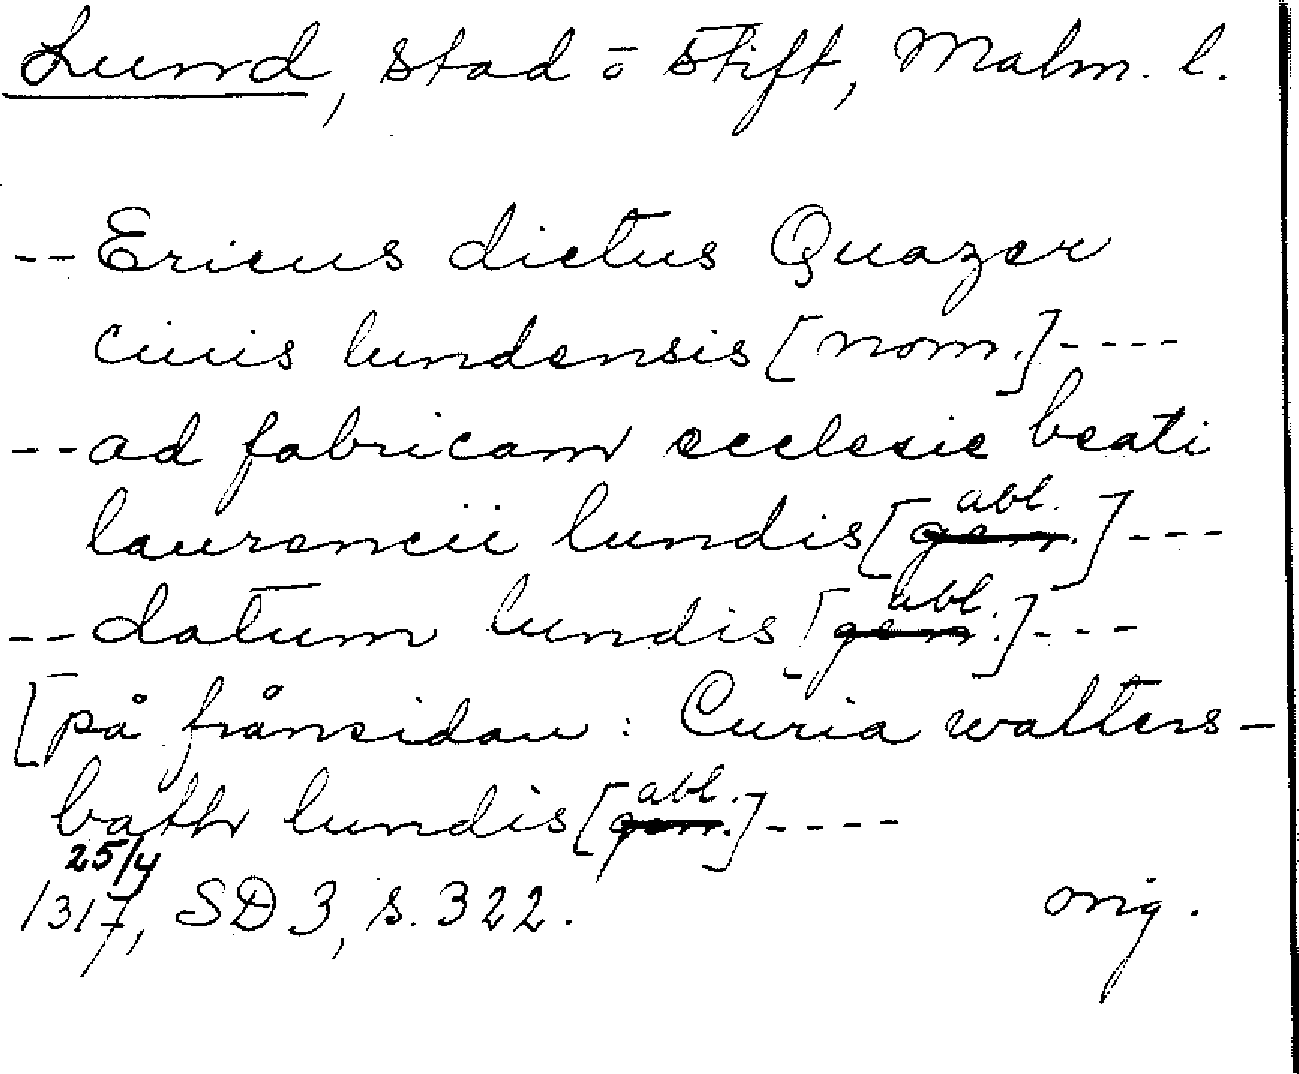 Lund, stad o stift, Malm. l.
-- Ericus dictus Quazer
ciuis lundensis [nom.] ----
-- ad fabricam ecclesie beati
laurencii lundis [gen. abl.] ---
-- datum lundis [gen. abl.] ---
[på frånsidan: Curia walters-
bath lundis [gen. abl.] ----
25/4
1317, SD 3, s. 322. orig.